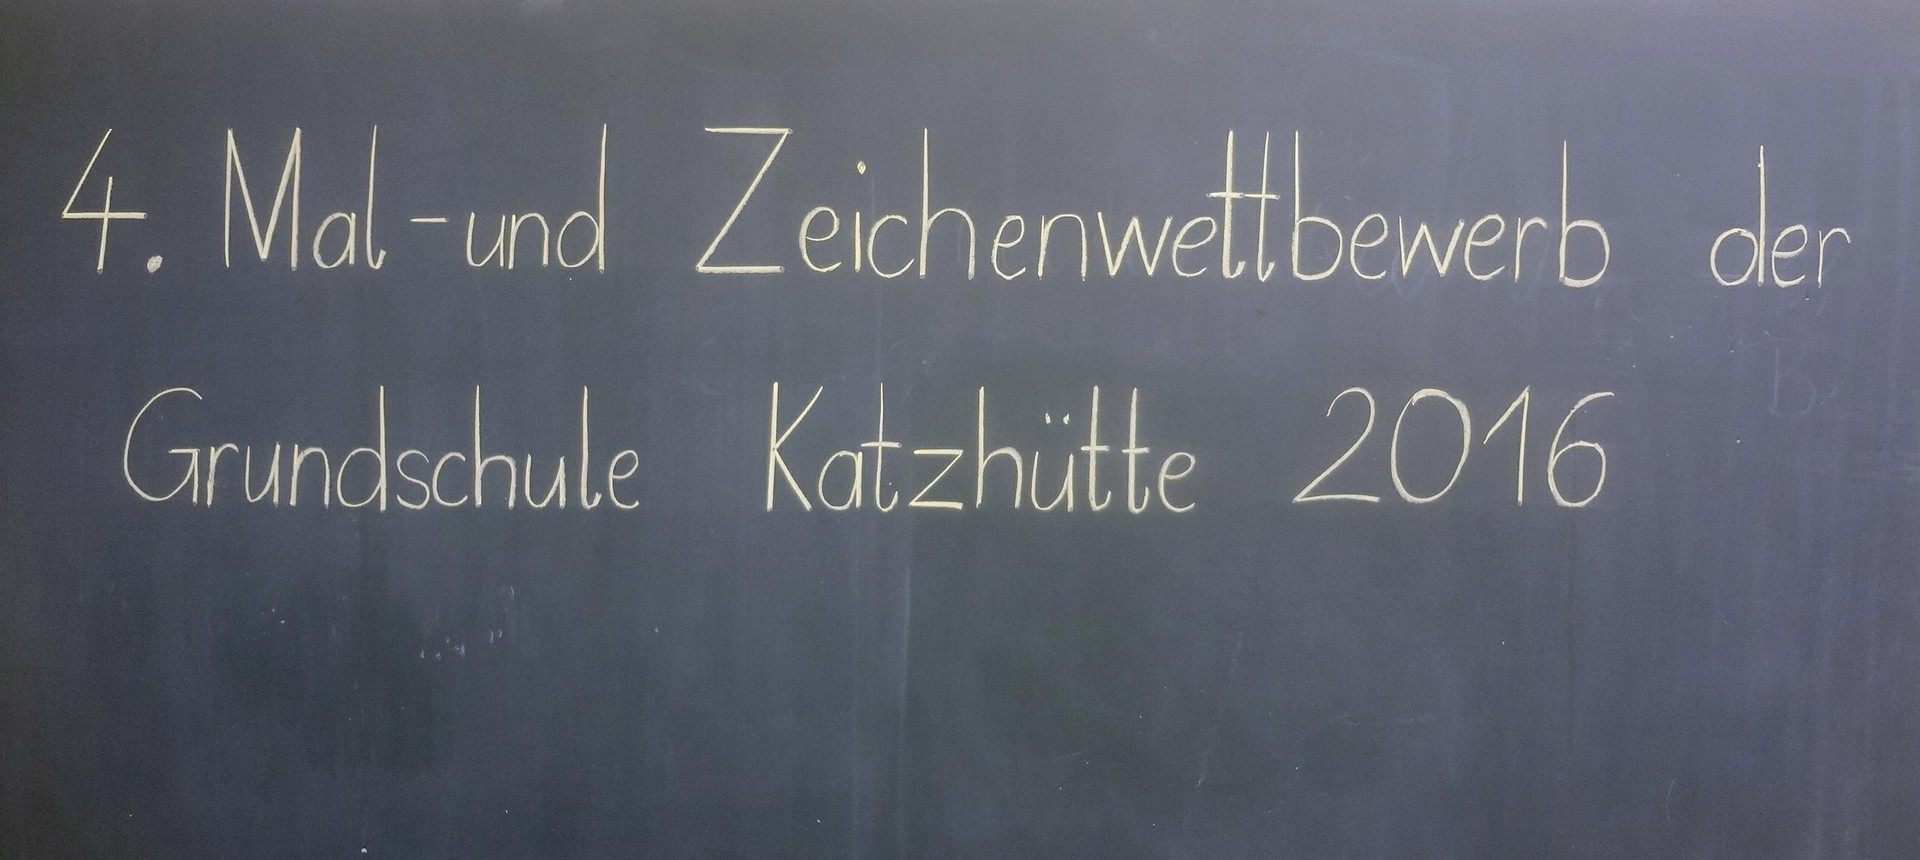 4. Mal-und Zeichenwettbewerb der
Grundschule Katzhütte 2016